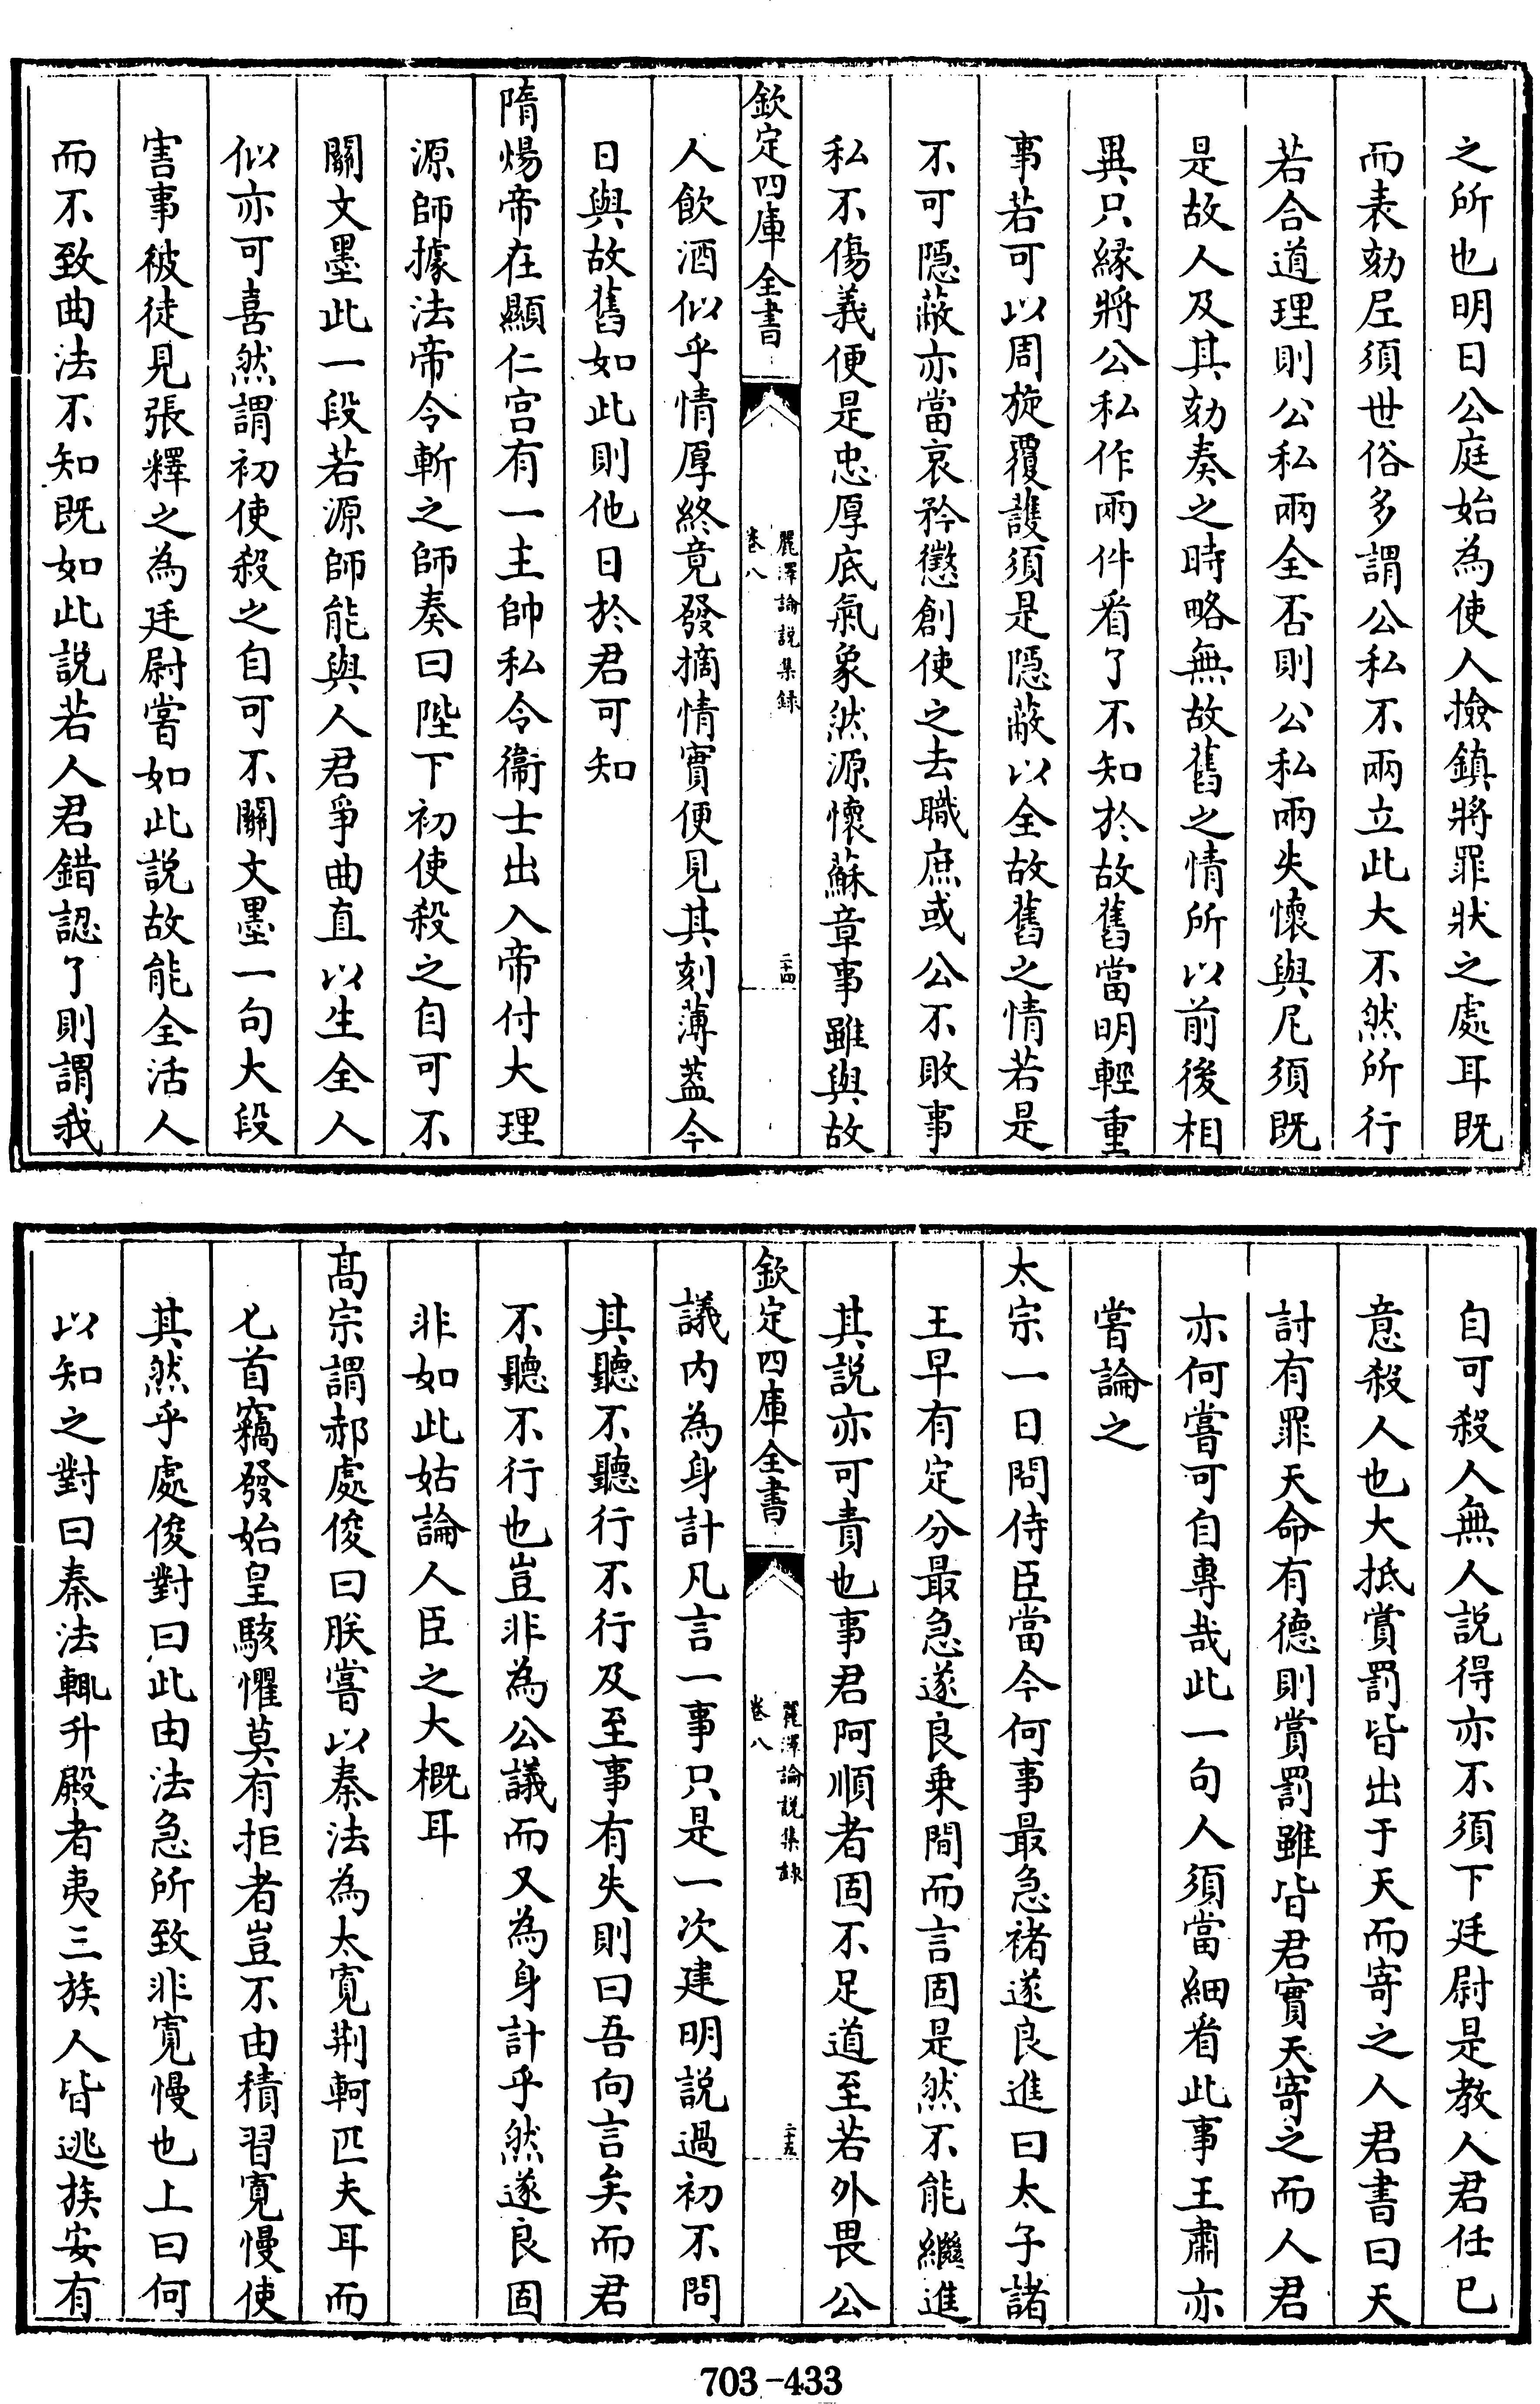 之所也明日公庭始為使人撿鎮將罪狀之處耳既
而表劾𡰱須世俗多謂公私不兩立此大不然所行
若合道理則公私兩全否則公私兩失懷與尼須既
是故人及其劾奏之時略無故舊之情所以前後相
異只緣將公私作兩件㸔了不知於故舊當明輕重
事若可以周旋覆護須是隠蔽以全故舊之情若是
不可隠蔽亦當哀矜懲創使之去職庶或公不敗事
私不傷義便是忠厚底氣象然源懷蘇章事雖與故
欽定四庫全書
麗澤論說集録
卷八
二十四
人飲酒似乎情厚終竟發摘情實便見其刻薄葢今
日與故舊如此則他日於君可知
隋煬帝在顯仁宫有一主帥私令衞士出入帝付大理
源師據法帝令斬之師奏曰陛下初使殺之自可不
關文墨此一段若源師能與人君爭曲直以生全人
似亦可喜然謂初使殺之自可不關文墨一句大段
害事彼徒見張釋之為廷尉嘗如此說故能全活人
而不致曲法不知既如此説若人君錯認了則謂我
自可殺人無人説得亦不須下廷尉是教人君任已
意殺人也大抵賞罰皆出于天而寄之人君書曰天
討有罪天命有德則賞罰雖皆君實天寄之而人君
亦何嘗可自專哉此一句人須當細㸔此事王肅亦
嘗論之
太宗一日問侍臣當今何事最急褚遂良進曰太子諸
王早有定分最急遂良乗間而言固是然不能繼進
其説亦可責也事君阿順者固不足道至若外畏公
欽定四庫全書
麗澤論說集録
卷八
二十五
議内為身計凡言一事只是一次建明説過初不問
其聽不聽行不行及至事有失則曰吾向言矣而君
不聽不行也豈非為公議而又為身計乎然遂良固
非如此姑論人臣之大概耳
髙宗謂郝處俊曰朕嘗以秦法為太寛荆軻匹夫耳而
匕首竊發始皇駭懼莫有拒者豈不由積習寛慢使
其然乎處俊對曰此由法急所致非寛慢也上曰何
以知之對曰秦法輒升殿者夷三族人皆逃族安有
703-433